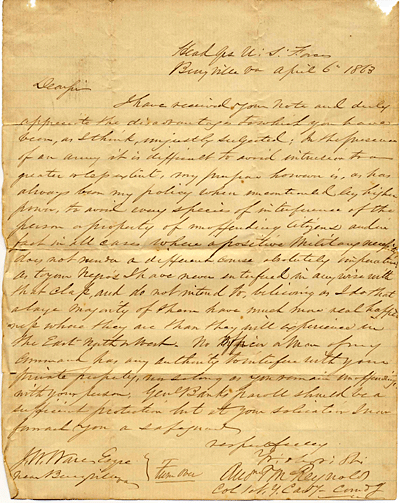 Head Qrs U.S. Forces
Berryville Va April 6th 1863
Dear Sir
I have received your note and duly
appreciate the disadvantage to which you have
been, as I think, unjustly subjected; In the presence
of an army it is difficult to avoid intrusion to a
greater or less extent, my purpose however is, as has
always been my policy when uncontroled by higher
power, to avoid every species of interference of the
person or property of unoffending citizens and
fact in all cases where a positive Military necessity
does not render a different course absolutely imperative
as to your Negros I have never interfered in any wise with
that class, and do not intend to, believing as I do that
a large majority of them have much more real happi
ness where they are than they will experience in
the East North or West. No Officer or Man of my
Command has any authority to interfere with your
private property, so long as you remain
with your person, Genl Banks parole should be a
sufficient protection but at your solicitation I now
furnish you a safeguard
respectfully
J.W. Ware Esqre
near Berryville
Turn over
And T McReynolds
Col 1st N.Y. Cavy Comdg